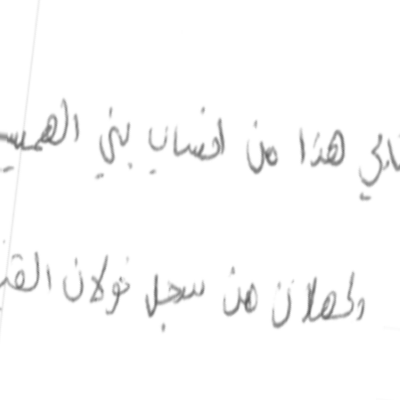 هذا من انساب بني الهميسـ
وكهلان من سجل خولان القـ